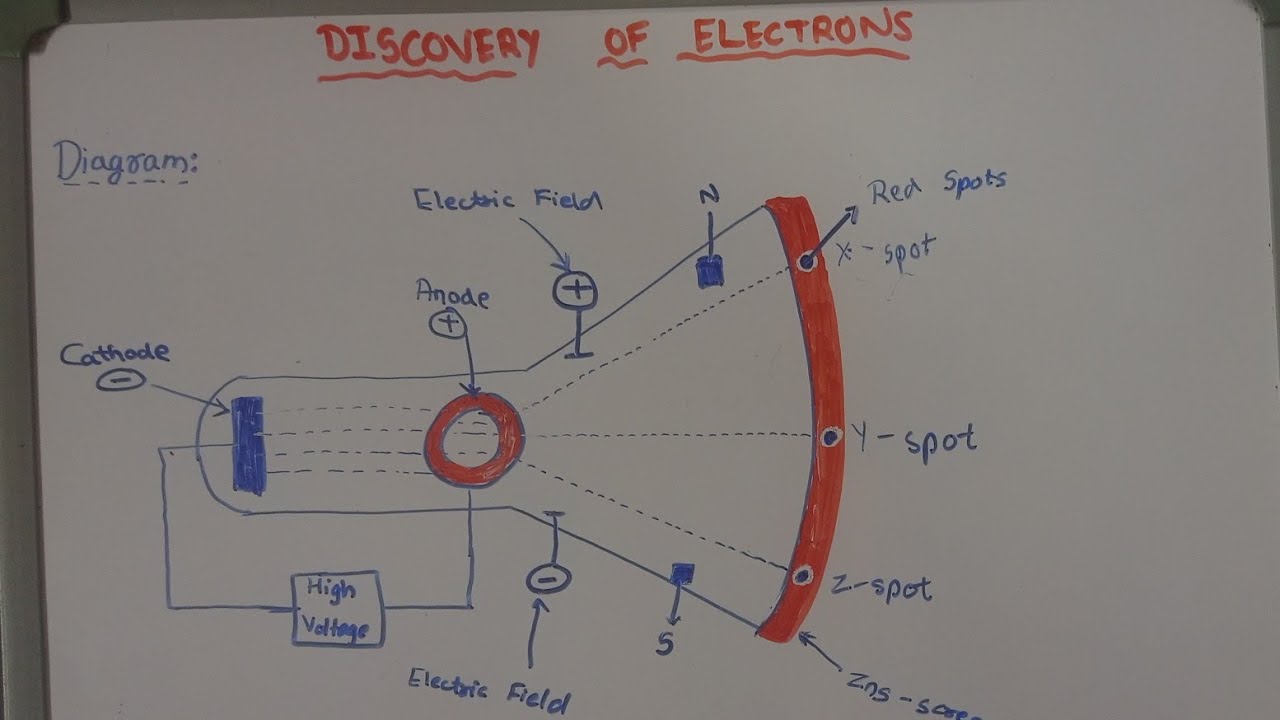 DISCOVERY OF ELECTRONS
Diagram:
Electric Field
N
Red Spots
X-spot
+
Anode
+
Cathode
-
Y-spot
High
Voltage
-
Z-spot
S
Electric Field
Zns-